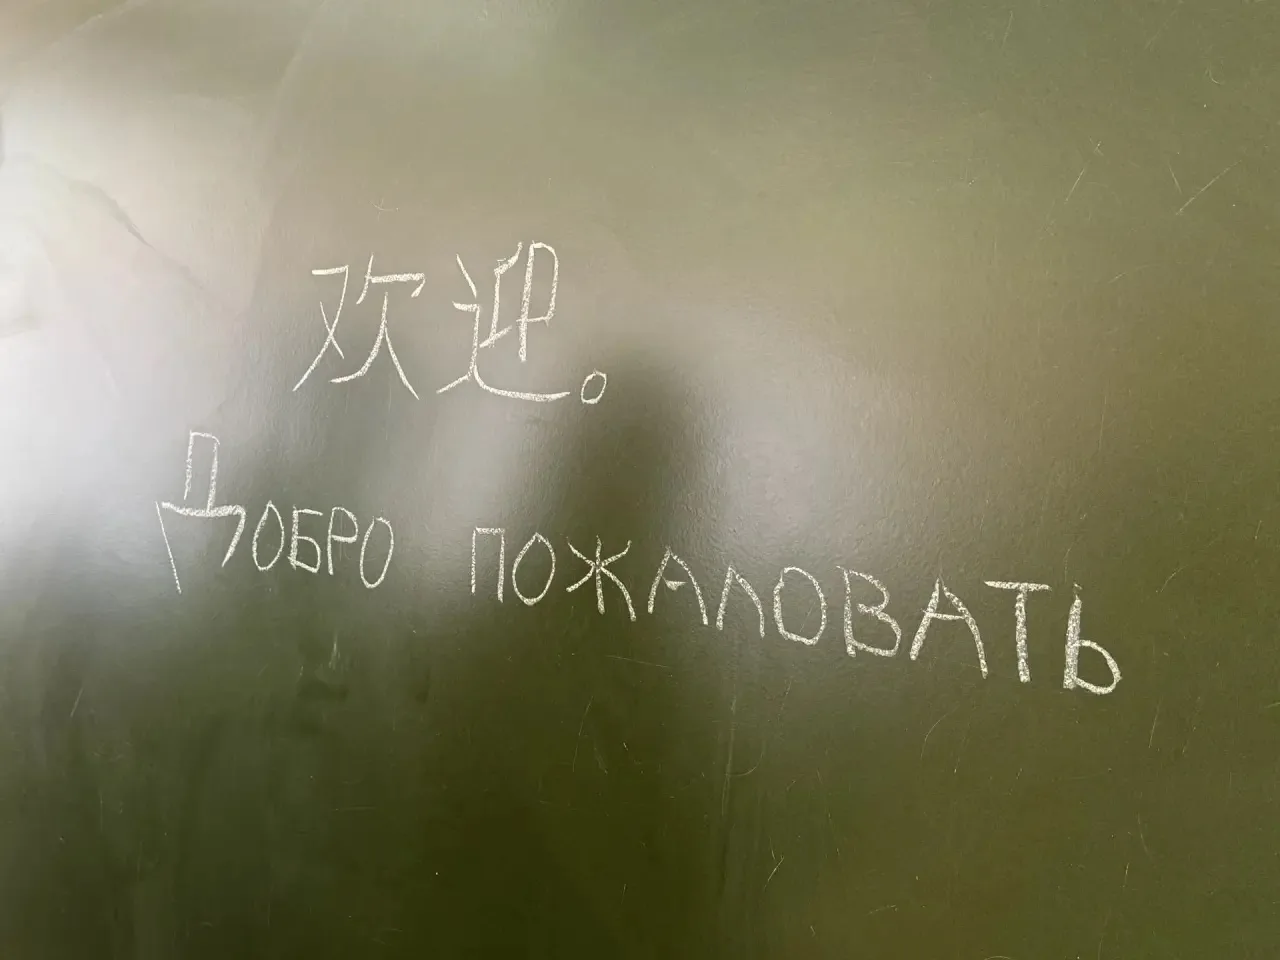 欢迎。
Добро пожаловать